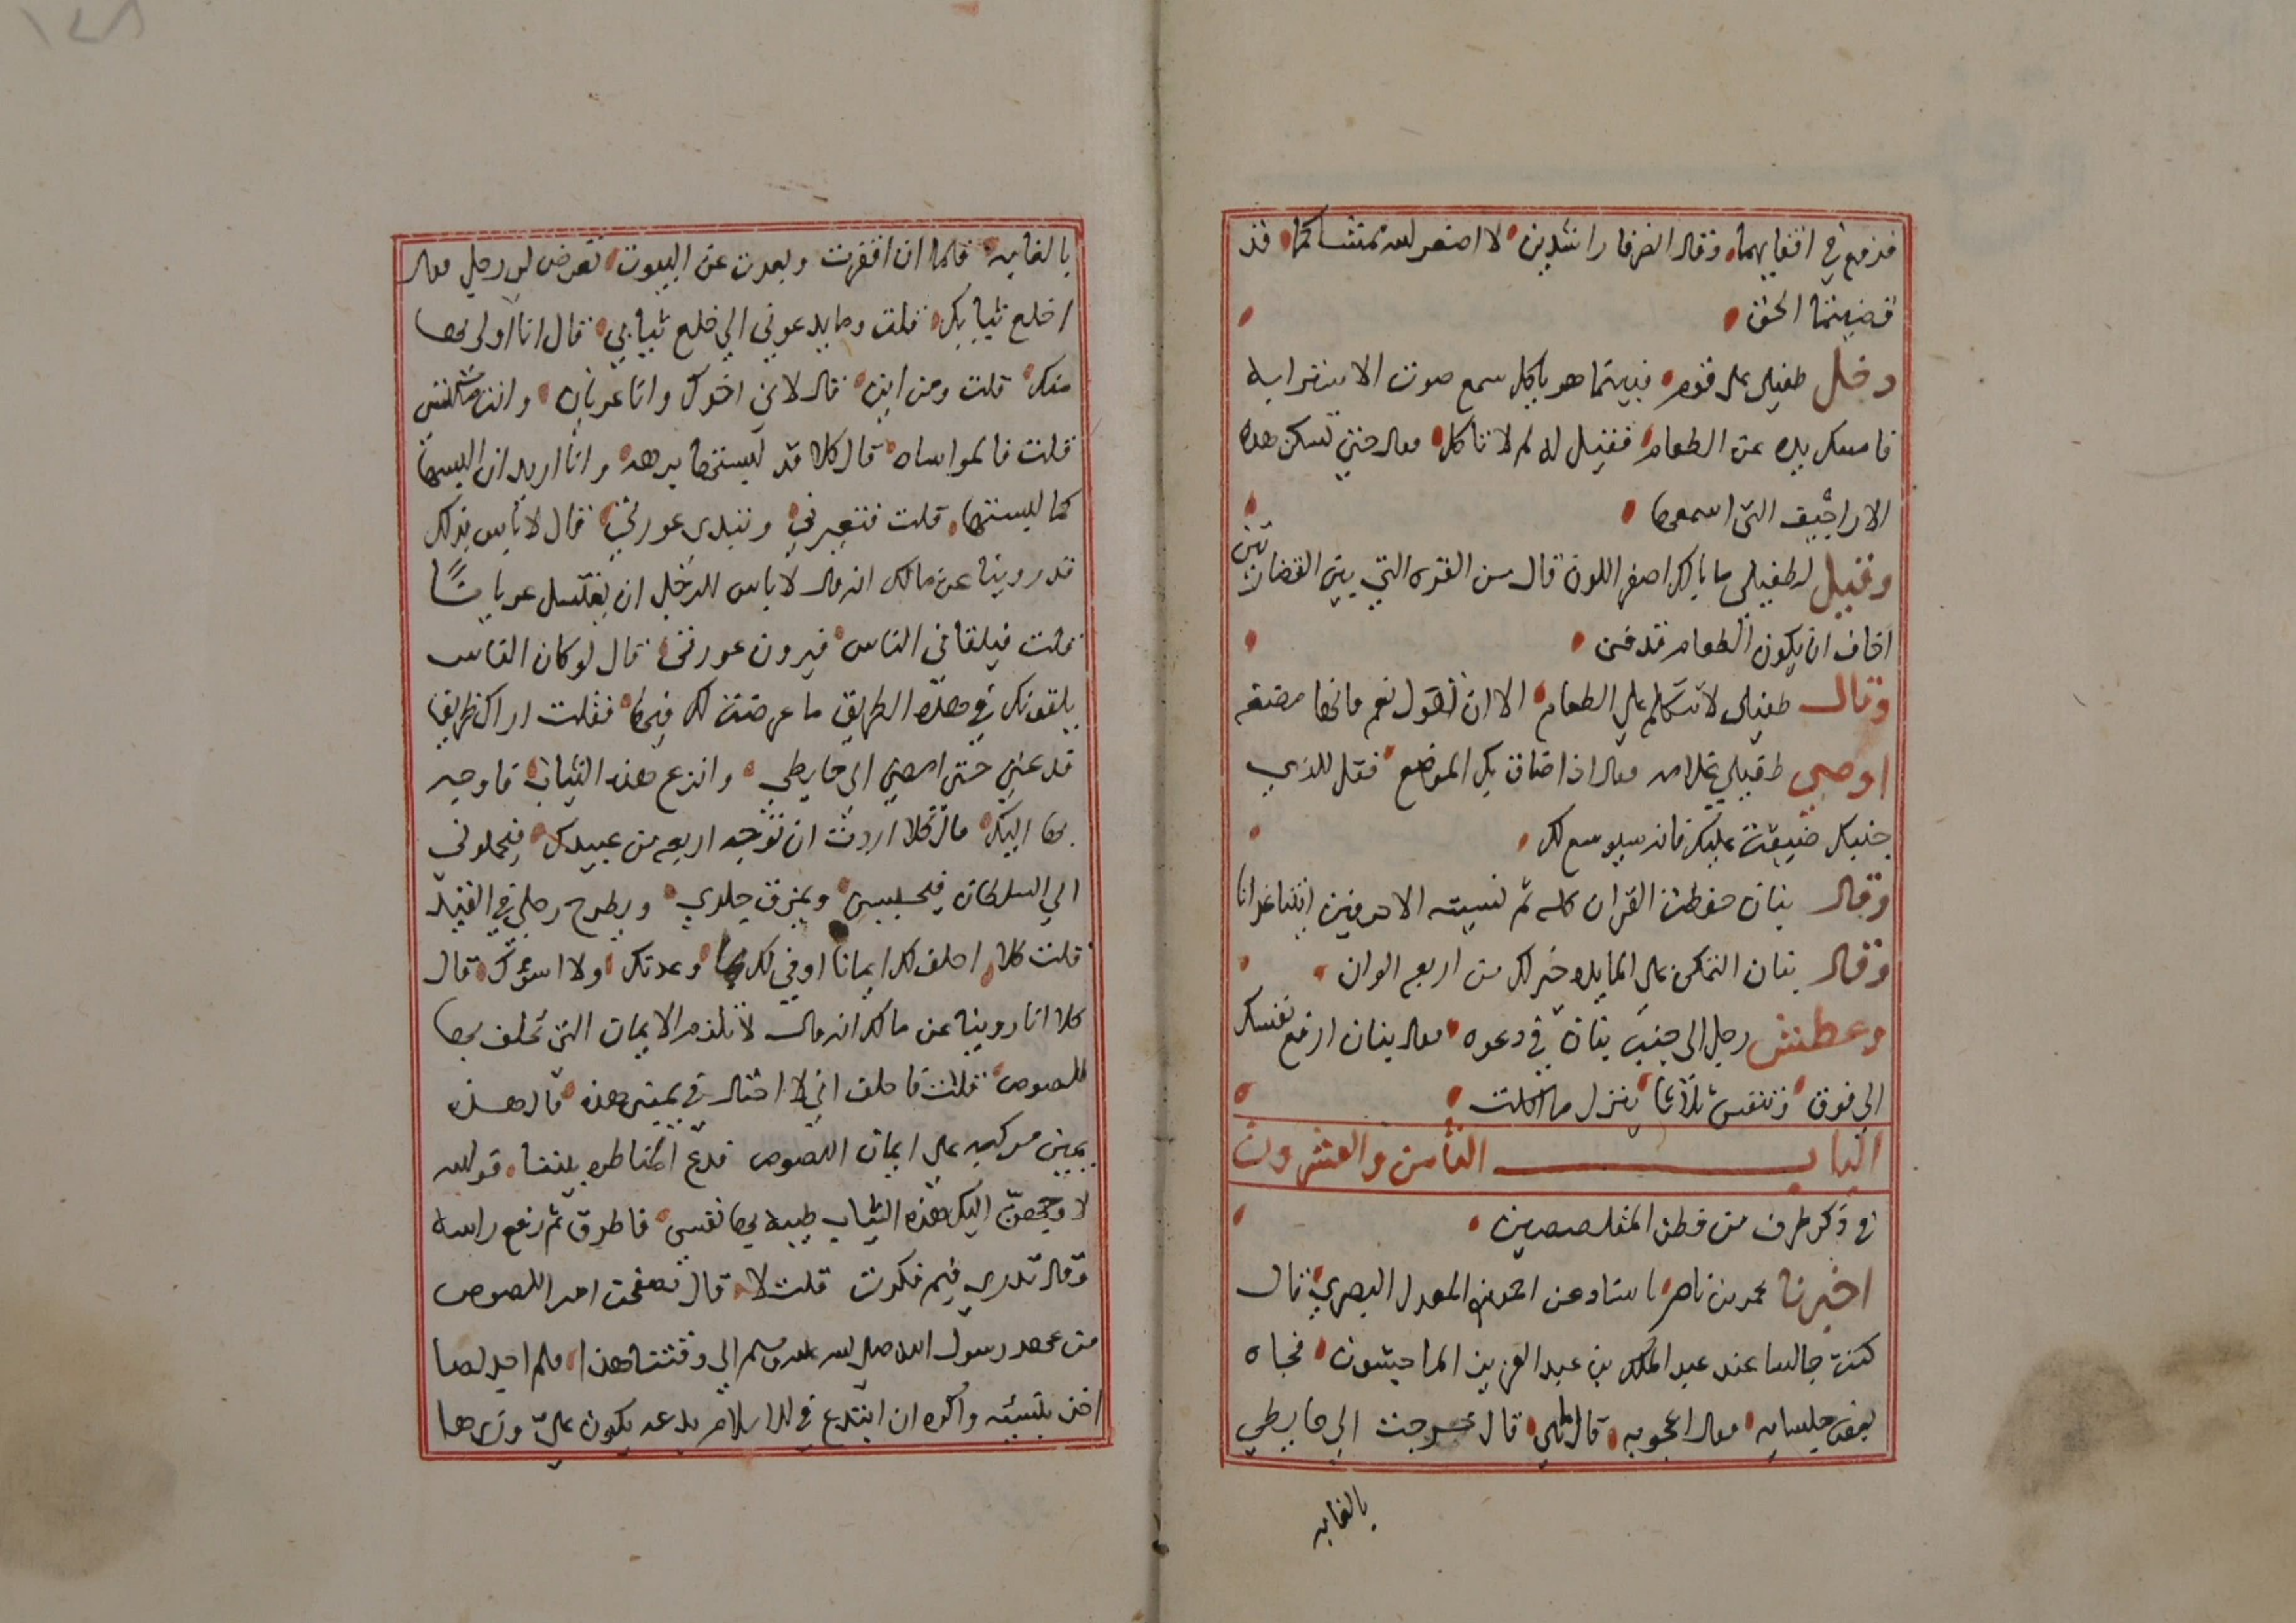 فدفع في اقفايهما وقال انصرفا راشدين لا اصغر الله ممشاكما فقد
قضيتما الحق
دخل طفيلي على قوم فبينما هو ياكل سمع صوت الاستغرابه
فامسك يده عن الطعام فقيل له لم لا تاكل فقال حتى تسكن هذه
الاراجيف التي اسمعها
وقيل لطفيلي ما بالك اصفر اللون قال من الفتره التي بين القصعتين
اخاف ان يكون الطعام قد فنى
وقال طفيلي لا تتكلم على الطعام الا ان تقول نعم فانها مضغه
اوصى طفيلي غلامه فقال اذا ضاق بك الموضع فقل للذي
جنبك ضيقت عليك فانه سيوسع لك
وقال بنان حفظت القران كله ثم نسيته الا حرفين اتنا غدانا
وقال بنان التمكن على المايده خير لك من اربعه الوان
وعطش رجل الى جنب بنان في دعوه فقال بنان ارفع نفسك
الى فوق وتنفس ثلاثا ينزل ما اكلت
الباب الثامن والعشرون
في ذكر طرف من فطن المتلصصين
اخبرنا محمد بن ناصر باسناد عن احمد بن المعدل البصري قال
كنت جالسا عند عبد الملك بن عبد العزيز الماجشون فجاه
بعض جلسايه فقال اعجوبه قال ما هي قال خرجت الى حايطي
بالغابه
بالغابه فلما ان اقفرت وبعدت عن البيوت تعرض لي رجل فقال
اخلع ثيابك فقلت وما يدعوني الى خلع ثيابي قال انا اولى بها
منك قلت ومن اين قال لاني اخوك وانا عريان وانت مكتس
قلت فالمواساه قال كلا قد لبستها برهه وانا اريد ان البسها
كما لبستها قلت فتعريني وتبدي عورتي قال لا باس بذلك
قد روينا عن مالك انه قال لا باس للرجل ان يغتسل عريانًا
قلت فيلقاني الناس فيرون عورتي قال لو كان الناس
يلقونك في هذه الطريق ما عرضت لك فيها فقلت اراك ظريفا
فدعني حتى امضي الى حايطي وانزع هذه الثياب فاوجه
بها اليك قال كلا اردت ان توجه اربعه من عبيدك فيحملوني
الى السلطان فيحبسني ويمزق جلدي ويطرح رجلي في القيد
قلت كلا احلف لك ايمانا اوفي لك بما وعدتك ولا اسؤك قال
كلا انا روينا عن مالك انه قال لا تلزم الايمان التي تحلف بها
للصوص قلت فاحلف اني لا احتال في يميني هذه قال هذه
يمين مركبه على ايمان اللصوص فدع المناظره بيننا فوالله
لاوجهن اليك هذه الثياب طيبه بها نفسي فاطرق ثم رفع راسه
وقال تدري فيم فكرت قلت لا قال تصفحت امر اللصوص
من عهد رسول الله صلى الله عليه وسلم الى وقتنا هذا فلم اجد لصا
اخذ بنسيئه واكره ان ابتدع في الاسلام بدعه يكون علي وزرها